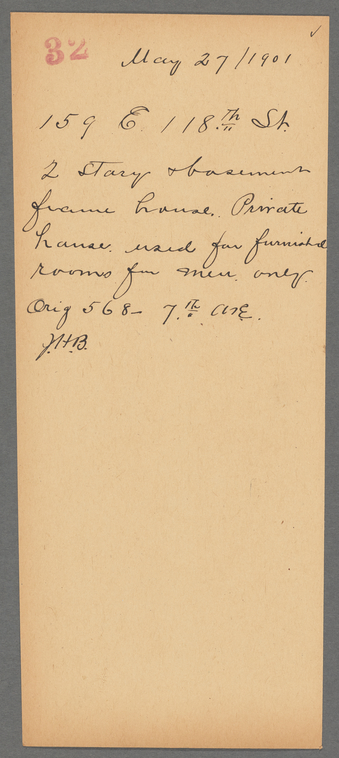 32
May 27/1901
159 E. 118th St.
2 story & basement
frame house. Private
house. used for furnished
rooms for men. only.
Orig 568 - 7th Ave.
J.H.B.